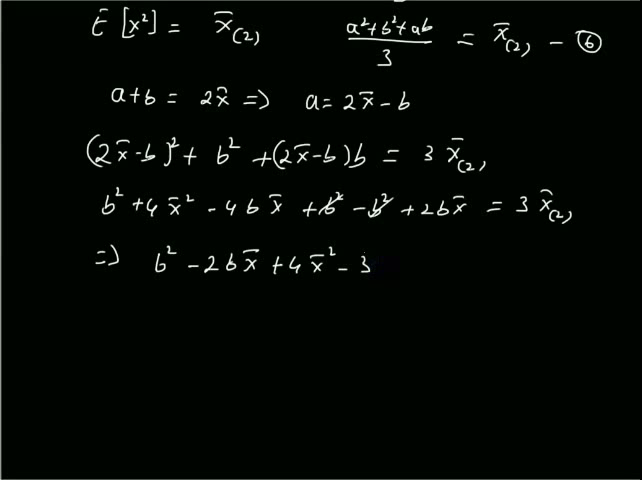 E [x²] = x̄₍₂₎ (a²+b²+ab)/3 = x̄₍₂₎ - ⑥
a+b = 2x̄ => a = 2x̄ - b
(2x̄-b)² + b² + (2x̄-b)b = 3 x̄₍₂₎
b² + 4x̄² - 4bx̄ + b² - b² + 2bx̄ = 3 x̄₍₂₎
=> b² - 2bx̄ + 4x̄² - 3